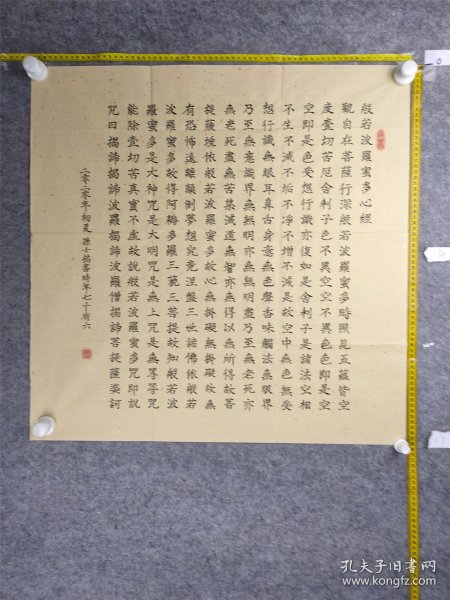 般若波羅蜜多心經
觀自在菩薩行深般若波羅蜜多時照見五蘊皆空
度壹切苦厄舍利子色不異空空不異色色即是空
空即是色受想行識亦復如是舍利子是諸法空相
不生不滅不垢不淨不增不減是故空中無色無受
想行識無眼耳鼻舌身意無色聲香味觸法無眼界
乃至無意識界無無明亦無無明盡乃至無老死亦
無老死盡無苦集滅道無智亦無得以無所得故菩
提薩埵依般若波羅蜜多故心無掛礙無掛礙故無
有恐怖遠離顛倒夢想究竟涅盤三世諸佛依般若
波羅蜜多故得阿耨多羅三藐三菩提故知般若波
羅蜜多是大神咒是大明咒是無上咒是無等等咒
能除壹切苦真實不虛故說般若波羅蜜多咒即說
咒曰揭諦揭諦波羅揭諦波羅僧揭諦菩提薩婆訶
二零二零年初夏 書時年七十有六
孔夫子旧书网
www.kongfz.com